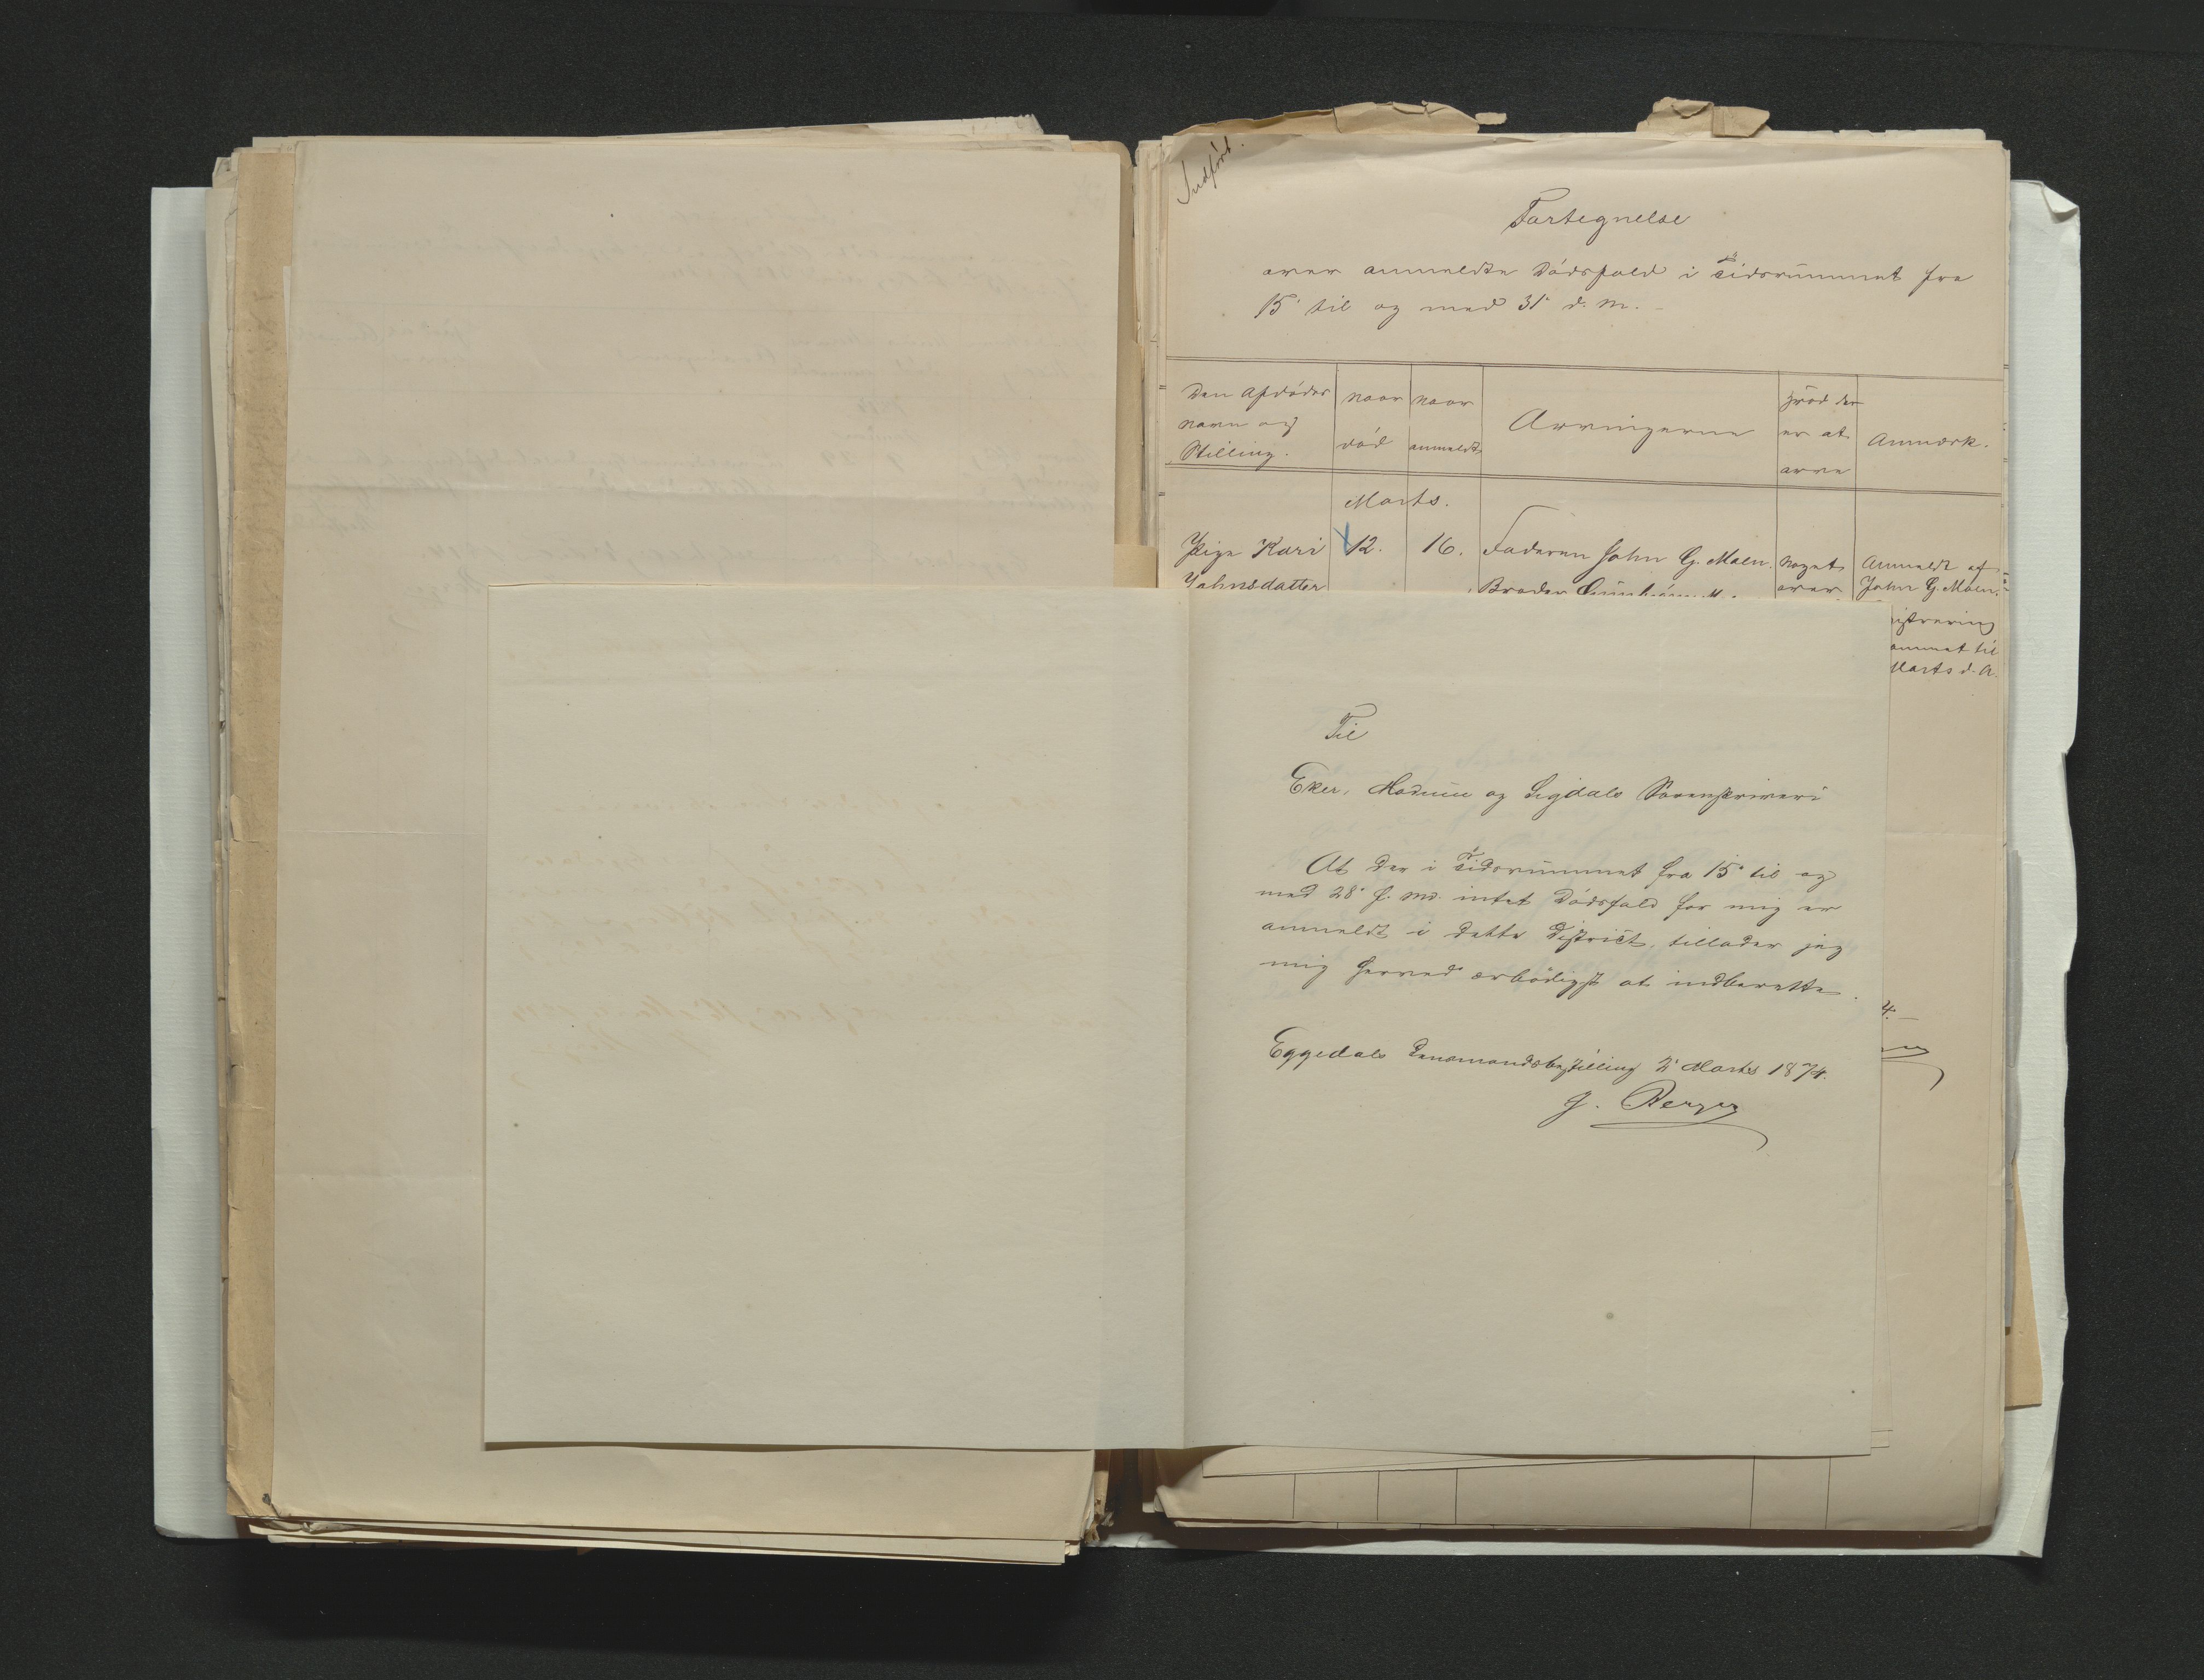 Indført.
Fortegnelse
over anmeldte Dødsfald i Tidsrummet fra
15' til og med 31' d. M.
Den Afdødes
Navn og
Stilling.
Naar
død
Naar
anmeldt
Arvingerne
Hvad der
er at
arve
Anmærk.
Marts.
Pige Kari
Johnsdatter
12.
16.
Faderen John G. Moen.
Broder
Noget
over
Anmeldt af
John G. Moen.
istrering
ammet til
Marts d. A.
4.
Til
Eker, Modum og Sigdals Sorenskriveri
At der i Tidsrummet fra 15' til og
med 28' f. Md. intet Dødsfald for mig er
anmeldt i dette District, tillader jeg
mig herved ærbødigst at indberette.
Eggedals Lensmandsbestilling 2' Marts 1874.